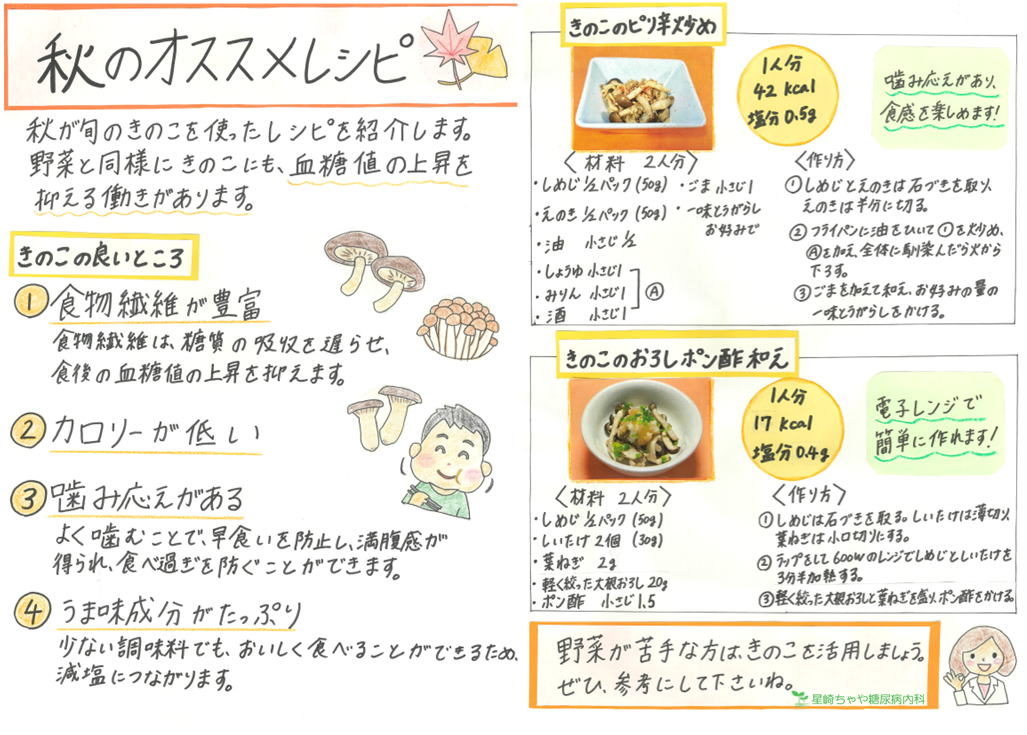 秋のオススメレシピ
秋が旬のきのこを使ったレシピを紹介します。
野菜と同様にきのこにも、血糖値の上昇を
抑える働きがあります。
きのこの良いところ
① 食物繊維が豊富
食物繊維は、糖質の吸収を遅らせ、
食後の血糖値の上昇を抑えます。
② カロリーが低い
③ 噛み応えがある
よく噛むことで、早食いを防止し、満腹感が
得られ、食べ過ぎを防ぐことができます。
④ うま味成分がたっぷり
少ない調味料でも、おいしく食べることができるため、
減塩につながります。
きのこのピリ辛炒め
1人分
42 kcal
塩分0.5g
噛み応えがあり、
食感を楽しめます!
〈材料 2人分〉
・しめじ 1/2パック (50g) ・ごま 小さじ1
・えのき 1/2パック (50g) ・一味とうがらし
お好みで
・油 小さじ1/2
・しょうゆ 小さじ1
・みりん 小さじ1 Ⓐ
・酒 小さじ1
〈作り方〉
①しめじとえのきは石づきを取り、
えのきは半分に切る。
②フライパンに油をひいて①を炒め、
Ⓐを加え、全体に馴染んだら火から
下ろす。
③ごまを加えて和え、お好みの量の
一味とうがらしをかける。
きのこのおろしポン酢和え
1人分
17 kcal
塩分0.4g
電子レンジで
簡単に作れます!
〈材料 2人分〉
・しめじ 1/2パック (50g)
・しいたけ 2個 (30g)
・葉ねぎ 2g
・軽く絞った大根おろし 20g
・ポン酢 小さじ1.5
〈作り方〉
①しめじは石づきを取る。しいたけは薄切り、
葉ねぎは小口切りにする。
②ラップをして600Wのレンジでしめじとしいたけを
3分半加熱する。
③軽く絞った大根おろしと葉ねぎを盛り、ポン酢をかける。
野菜が苦手な方は、きのこを活用しましょう。
ぜひ、参考にして下さいね。
星崎ちゃや糖尿病内科